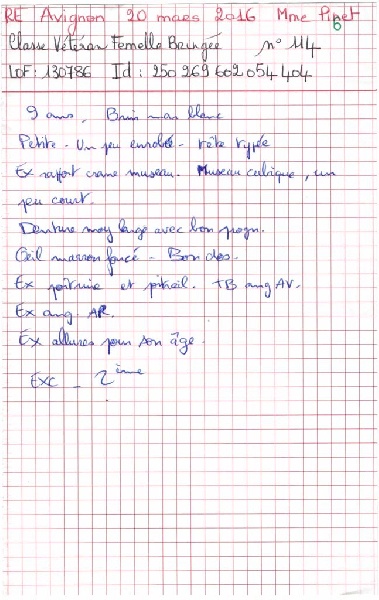 RE Avignon 20 mars 2016 Mme Pinet
6
Classe Vétéran Femelle Bringée n° 114
LOF: 130786 Id: 250 269 602 054 404
9 ans, Brin mas blanc
Petite - Un peu enrobée - tête typée
Ex rapport crane museau. Museau cubique, un
peu court.
Denture moy large avec bon progn.
Oeil marron foncé - Bon dos.
Ex poitrine et poitrail. TB ang AV.
Ex ang. AR.
Ex allures pour son âge.
EXC - 2ème